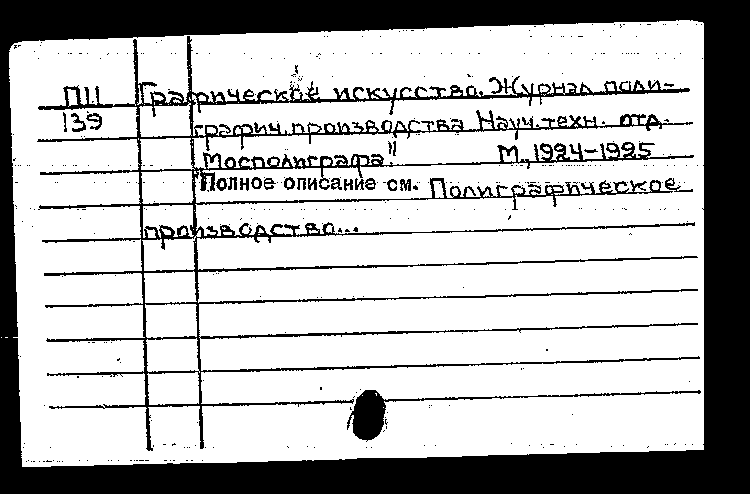 П11 Графическое искусство. Журнал поли-
139 графич. производства Науч. техн. отд.
"Мосполиграфа". М., 1924-1925
Полное описание см. Полиграфическое
производство...